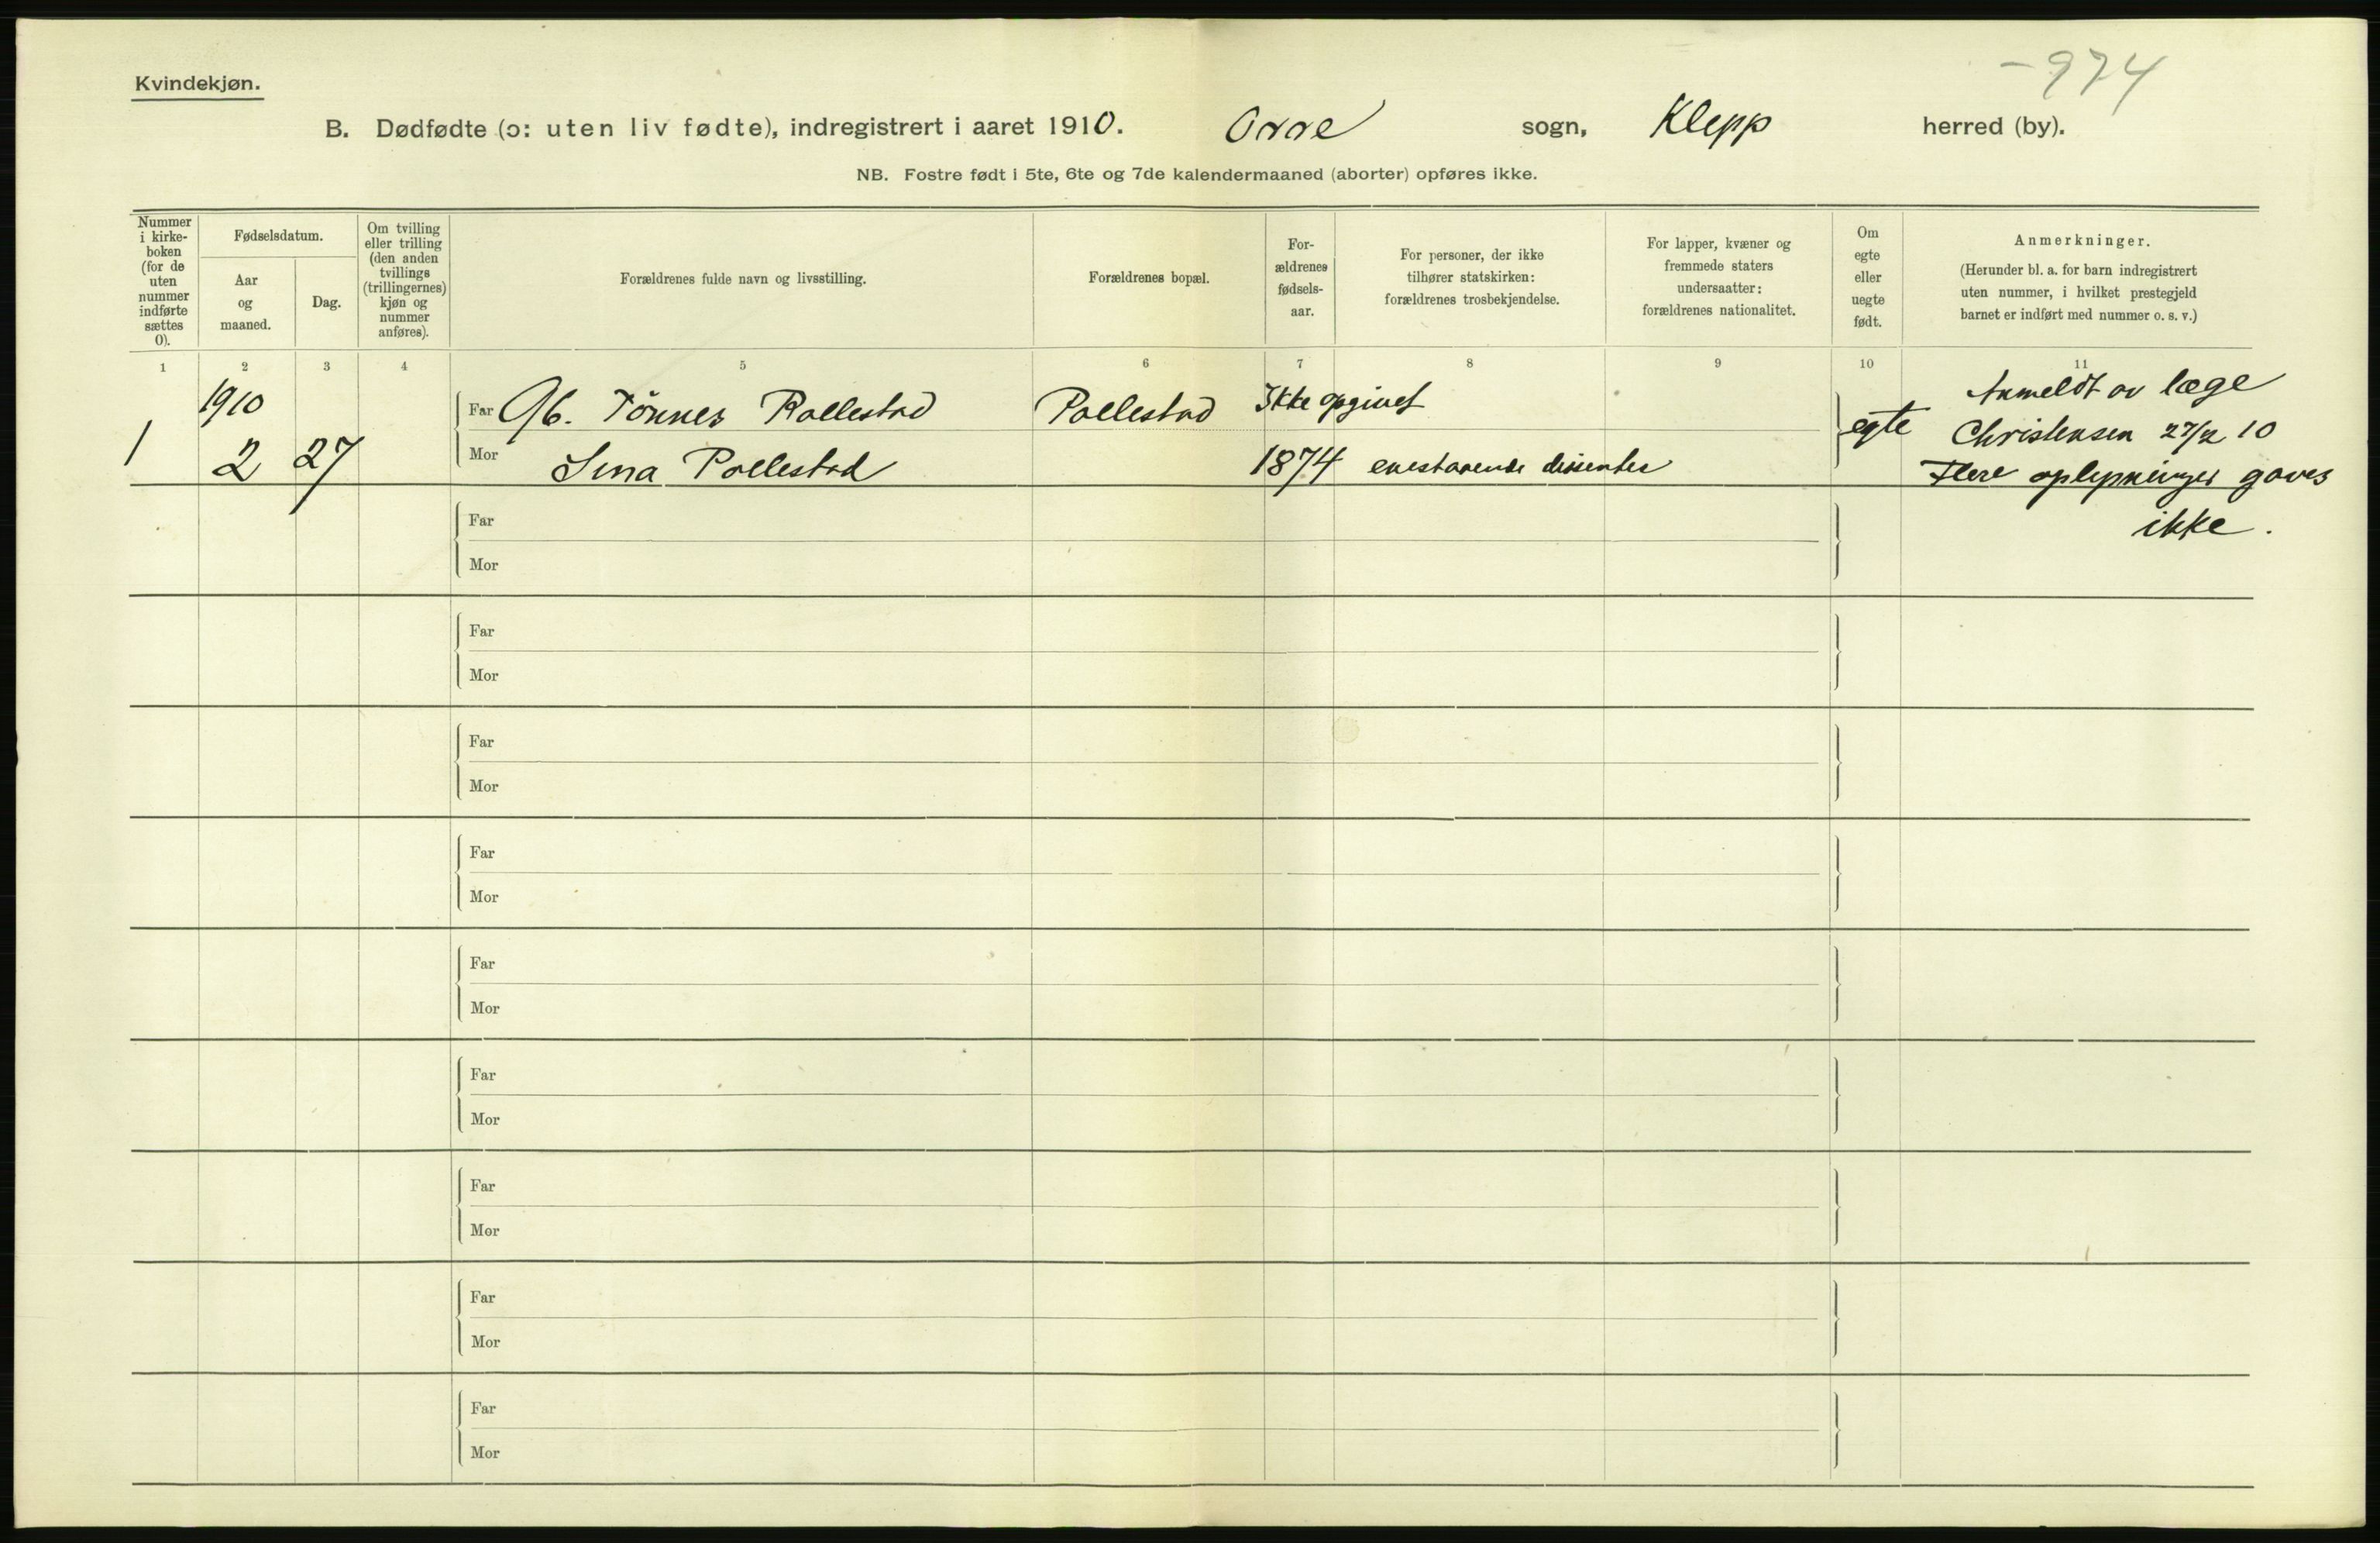 -974
Kvindekjøn.
B. Dødfødte (ɔ: uten liv fødte), indregistrert i aaret 1910. Orre sogn, Klepp herred (by).
NB. Fostre født i 5te, 6te og 7de kalendermaaned (aborter) opføres ikke.
Nummer
i kirke-
boken
(for de
uten
nummer
indførte
sættes
0).
Fødselsdatum.
Aar
og
maaned.
Dag.
Om tvilling
eller trilling
(den anden
tvillings
(trillingernes)
kjøn og
nummer
anføres).
Forældrenes fulde navn og livsstilling.
Forældrenes bopæl.
For-
ældrenes
fødsels-
aar.
For personer, der ikke
tilhører statskirken:
forældrenes trosbekjendelse.
For lapper, kvæner og
fremmede staters
undersaatter:
forældrenes nationalitet.
Om
egte
eller
uegte
født.
Anmerkninger.
(Herunder bl. a. for barn indregistrert
uten nummer, i hvilket prestegjeld
barnet er indført med nummer o. s. v.)
1 2 3 4 5 6 7 8 9 10 11
1910 Far Gb. Tönnes Pollestad Pollestad Ikke opgivet Anmeldt av læge
1 2 27 Mor Sina Pollestad 1874 enestaaende dissenter egte Christensen 27/2 10
Flere oplysninger gaves
ikke.
Far
Mor
Far
Mor
Far
Mor
Far
Mor
Far
Mor
Far
Mor
Far
Mor
Far
Mor
Far
Mor